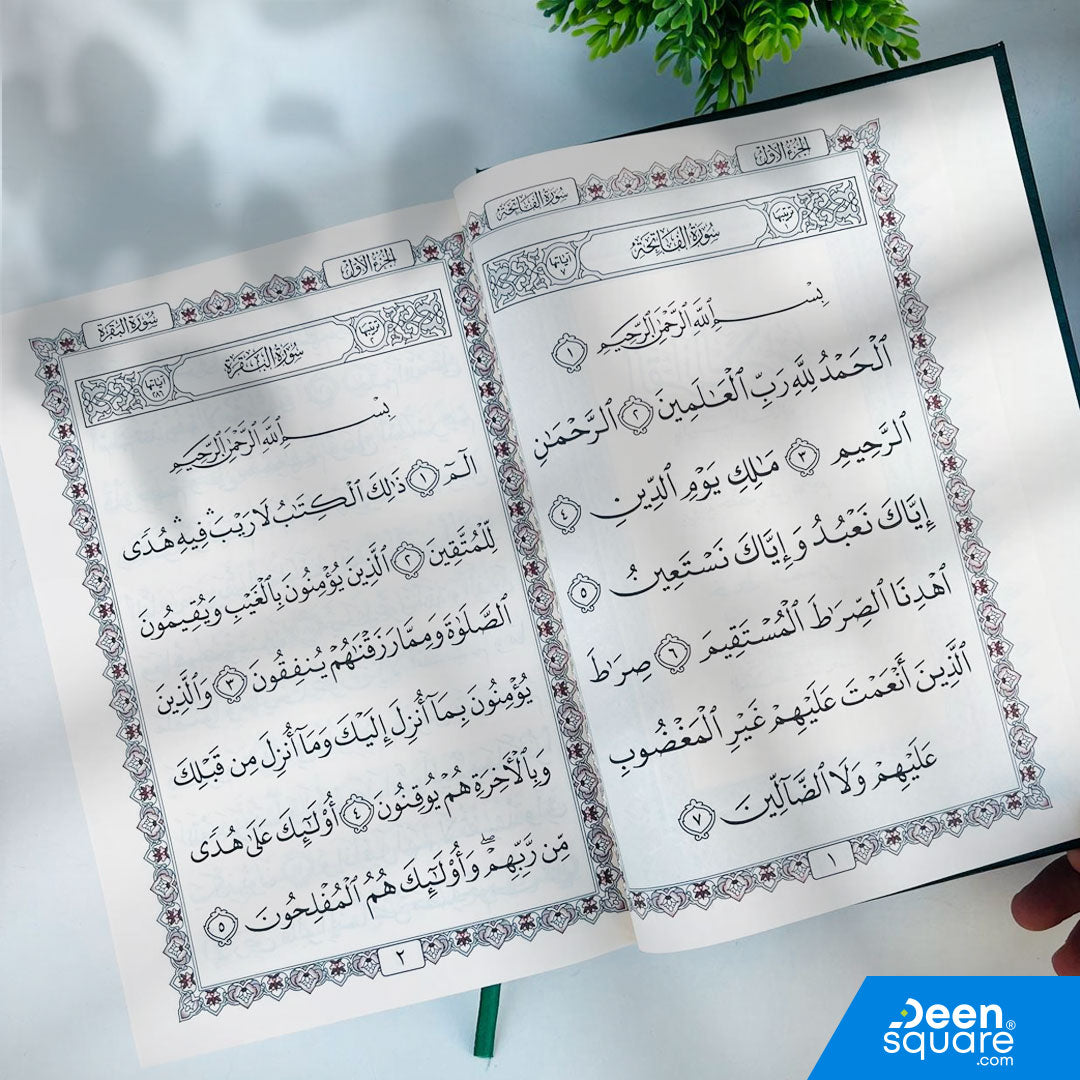 الجزء الأول
سورة الفاتحة
ترتيبها ١
سورة الفاتحة
آياتها ٧
بِسْمِ ٱللَّهِ ٱلرَّحْمَٰنِ ٱلرَّحِيمِ ١
ٱلْحَمْدُ لِلَّهِ رَبِّ ٱلْعَٰلَمِينَ ٢ ٱلرَّحْمَٰنِ
ٱلرَّحِيمِ ٣ مَٰلِكِ يَوْمِ ٱلدِّينِ ٤
إِيَّاكَ نَعْبُدُ وَإِيَّاكَ نَسْتَعِينُ ٥
ٱهْدِنَا ٱلصِّرَٰطَ ٱلْمُسْتَقِيمَ ٦ صِرَٰطَ
ٱلَّذِينَ أَنْعَمْتَ عَلَيْهِمْ غَيْرِ ٱلْمَغْضُوبِ
عَلَيْهِمْ وَلَا ٱلضَّآلِّينَ ٧
١
الجزء الأول
سورة البقرة
ترتيبها ٢
سورة البقرة
آياتها ٢٨٦
بِسْمِ ٱللَّهِ ٱلرَّحْمَٰنِ ٱلرَّحِيمِ
الٓمٓ ١ ذَٰلِكَ ٱلْكِتَٰبُ لَا رَيْبَ ۛ فِيهِ ۛ هُدًى
لِّلْمُتَّقِينَ ٢ ٱلَّذِينَ يُؤْمِنُونَ بِٱلْغَيْبِ وَيُقِيمُونَ
ٱلصَّلَوٰةَ وَمِمَّا رَزَقْنَٰهُمْ يُنفِقُونَ ٣ وَٱلَّذِينَ
يُؤْمِنُونَ بِمَآ أُنزِلَ إِلَيْكَ وَمَآ أُنزِلَ مِن قَبْلِكَ
وَبِٱلْءَاخِرَةِ هُمْ يُوقِنُونَ ٤ أُو۟لَٰٓئِكَ عَلَىٰ هُدًى
مِّن رَّبِّهِمْ ۖ وَأُو۟لَٰٓئِكَ هُمُ ٱلْمُفْلِحُونَ ٥
٢
Deen
square®
.com